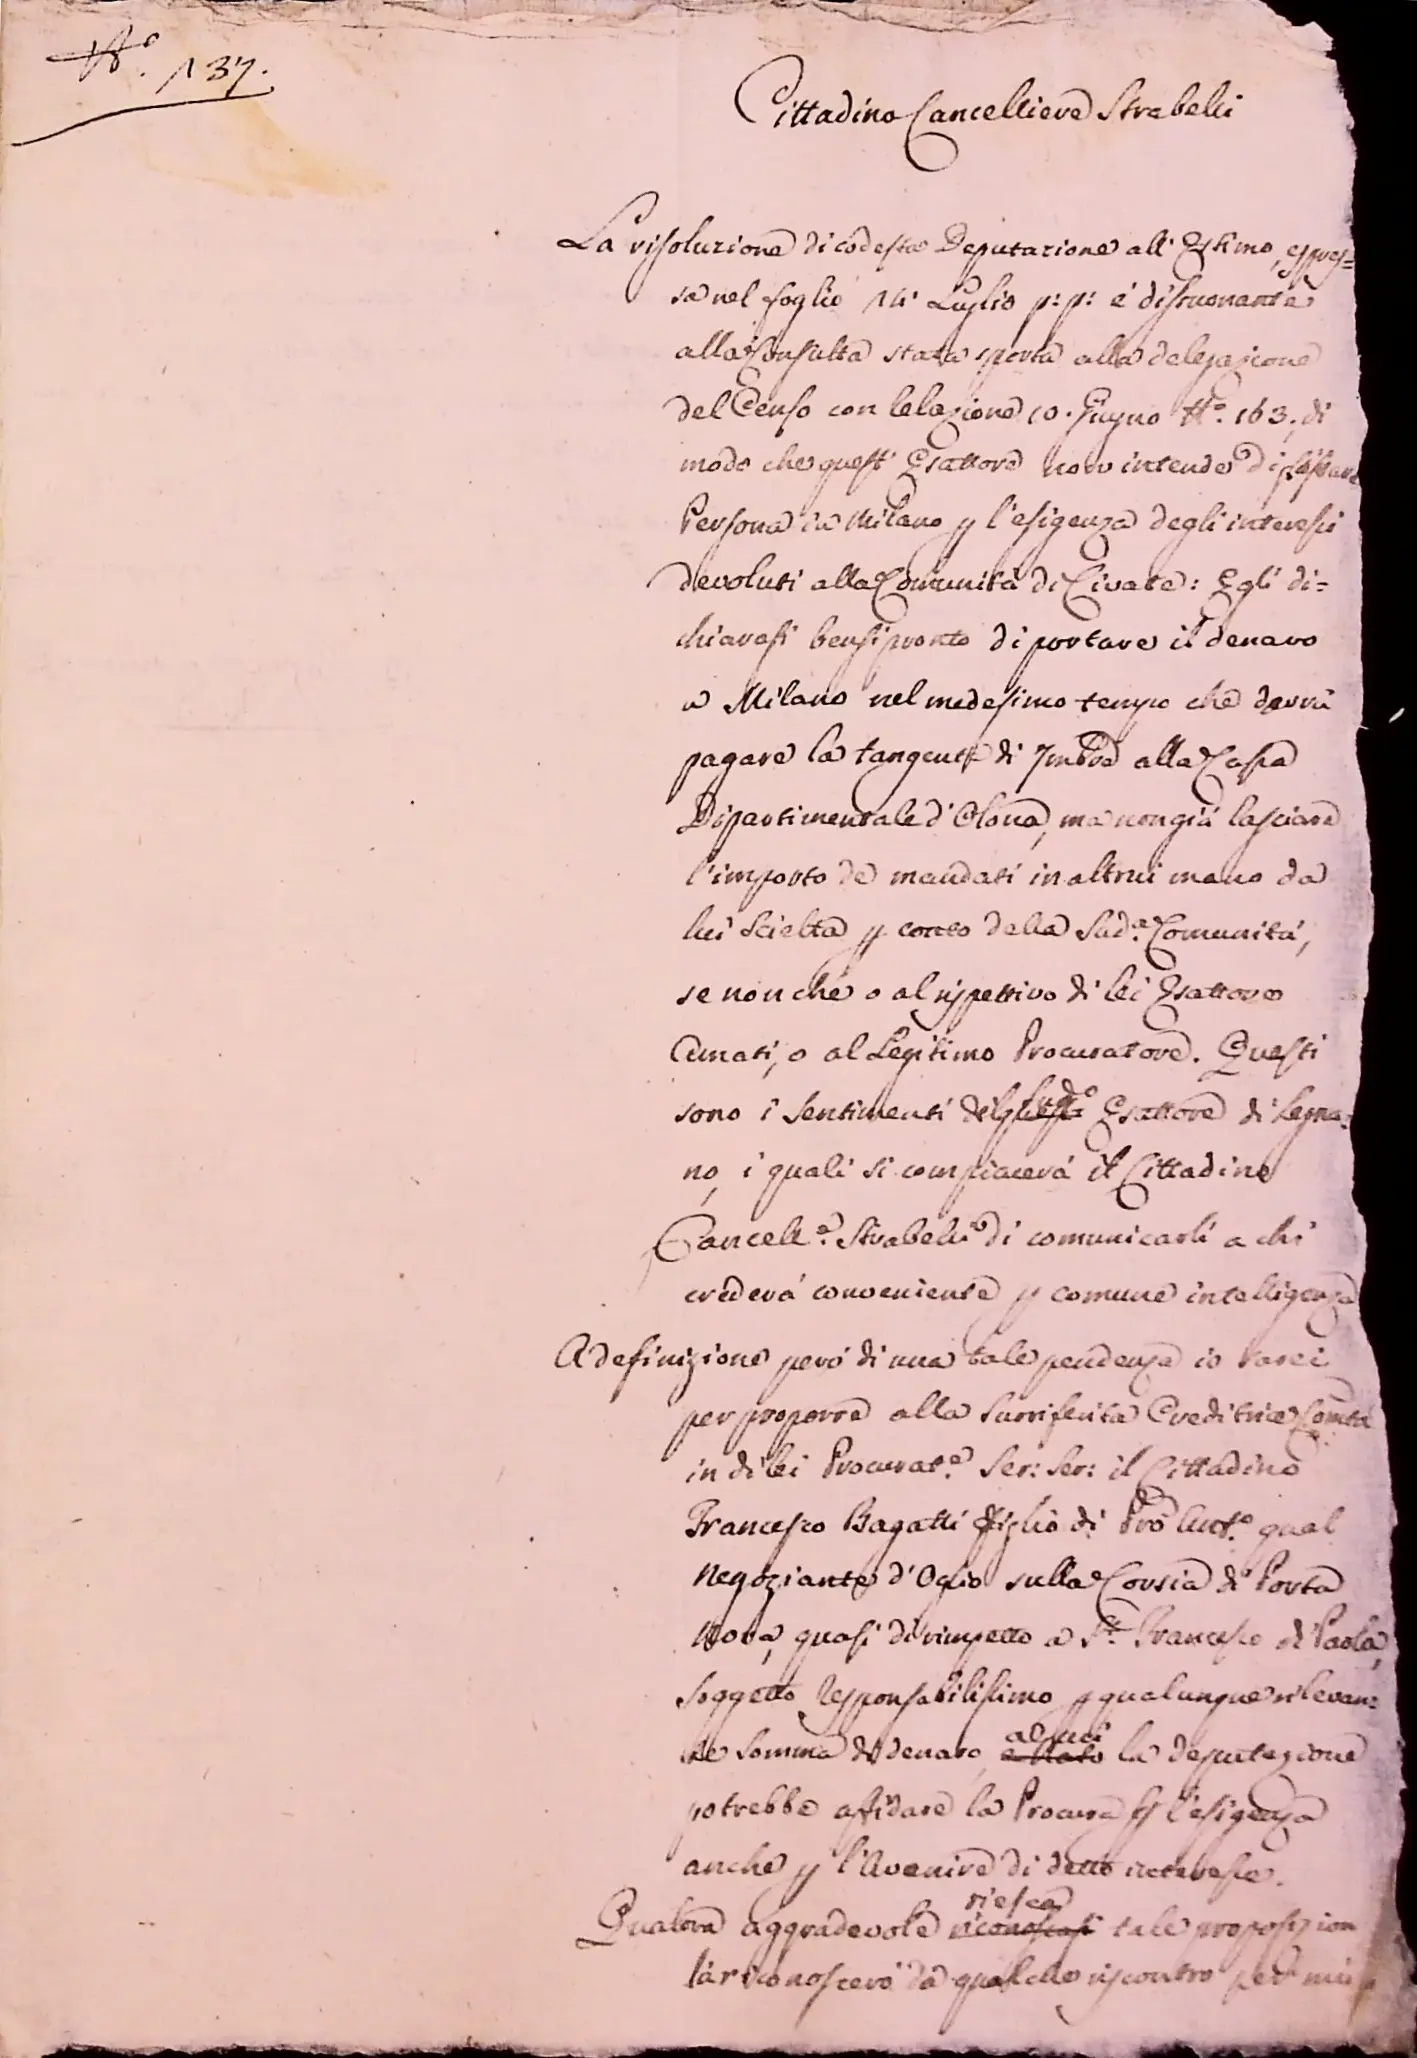 N.° 137.
Cittadino Cancelliere Strabelli
La risoluzione di codesta Deputazione all' Estimo, espres=
sa nel foglio 14 Luglio p: p: é dissuonante
alla Consulta stata sporta alla delegazione
del Censo con Relazione 10. Giugno N.° 163., di
modo che quest' Esattore non intende di
Persona in Milano p l'esigenza degli interessi
devoluti alla Comunità di Civate: Egli di=
chiarasi bensi pronto di portare il denaro
a Milano nel medesimo tempo che dovrà
pagare la tangente di 7mbre alla Cassa
Dipartimentale d'Olona, ma non già lasciare
l'importo de mandati in altrui mano da
lui Scielta p conto della Sud.a Comunità,
se non ché o al rispettivo di lei Esattore
o al Legitimo Procuratore. Questi
sono i Sentimenti del Esattore di Legna=
no, i quali si compiacerà il Cittadino
Cancell.e Strabelli di comunicarli a chi
crederá conveniente p comune intelligenza
A definizione però di una tale pendenza io sarei
per proporre alla Surriferita Creditrice Comtà
in di lei Procurat.e Ser: Ser: il Cittadino
Francesco Bagatti figlio di Pro Ant.o qual
Negoziante d'Oglio sulla Corsia di Porta
Nova, quasi dirimpetto a S.n Francesco di Paola,
Soggetto Responsabilissimo p qualunque rilevan=
te Somma di denaro, al cui la deputazione
potrebbe affidare la Procura p l'esigenza
anche p l'Avenire di detto interesse.
Qualora aggradevole riesca tale proposizion
la riconoscerò da qualche riscontro per mia